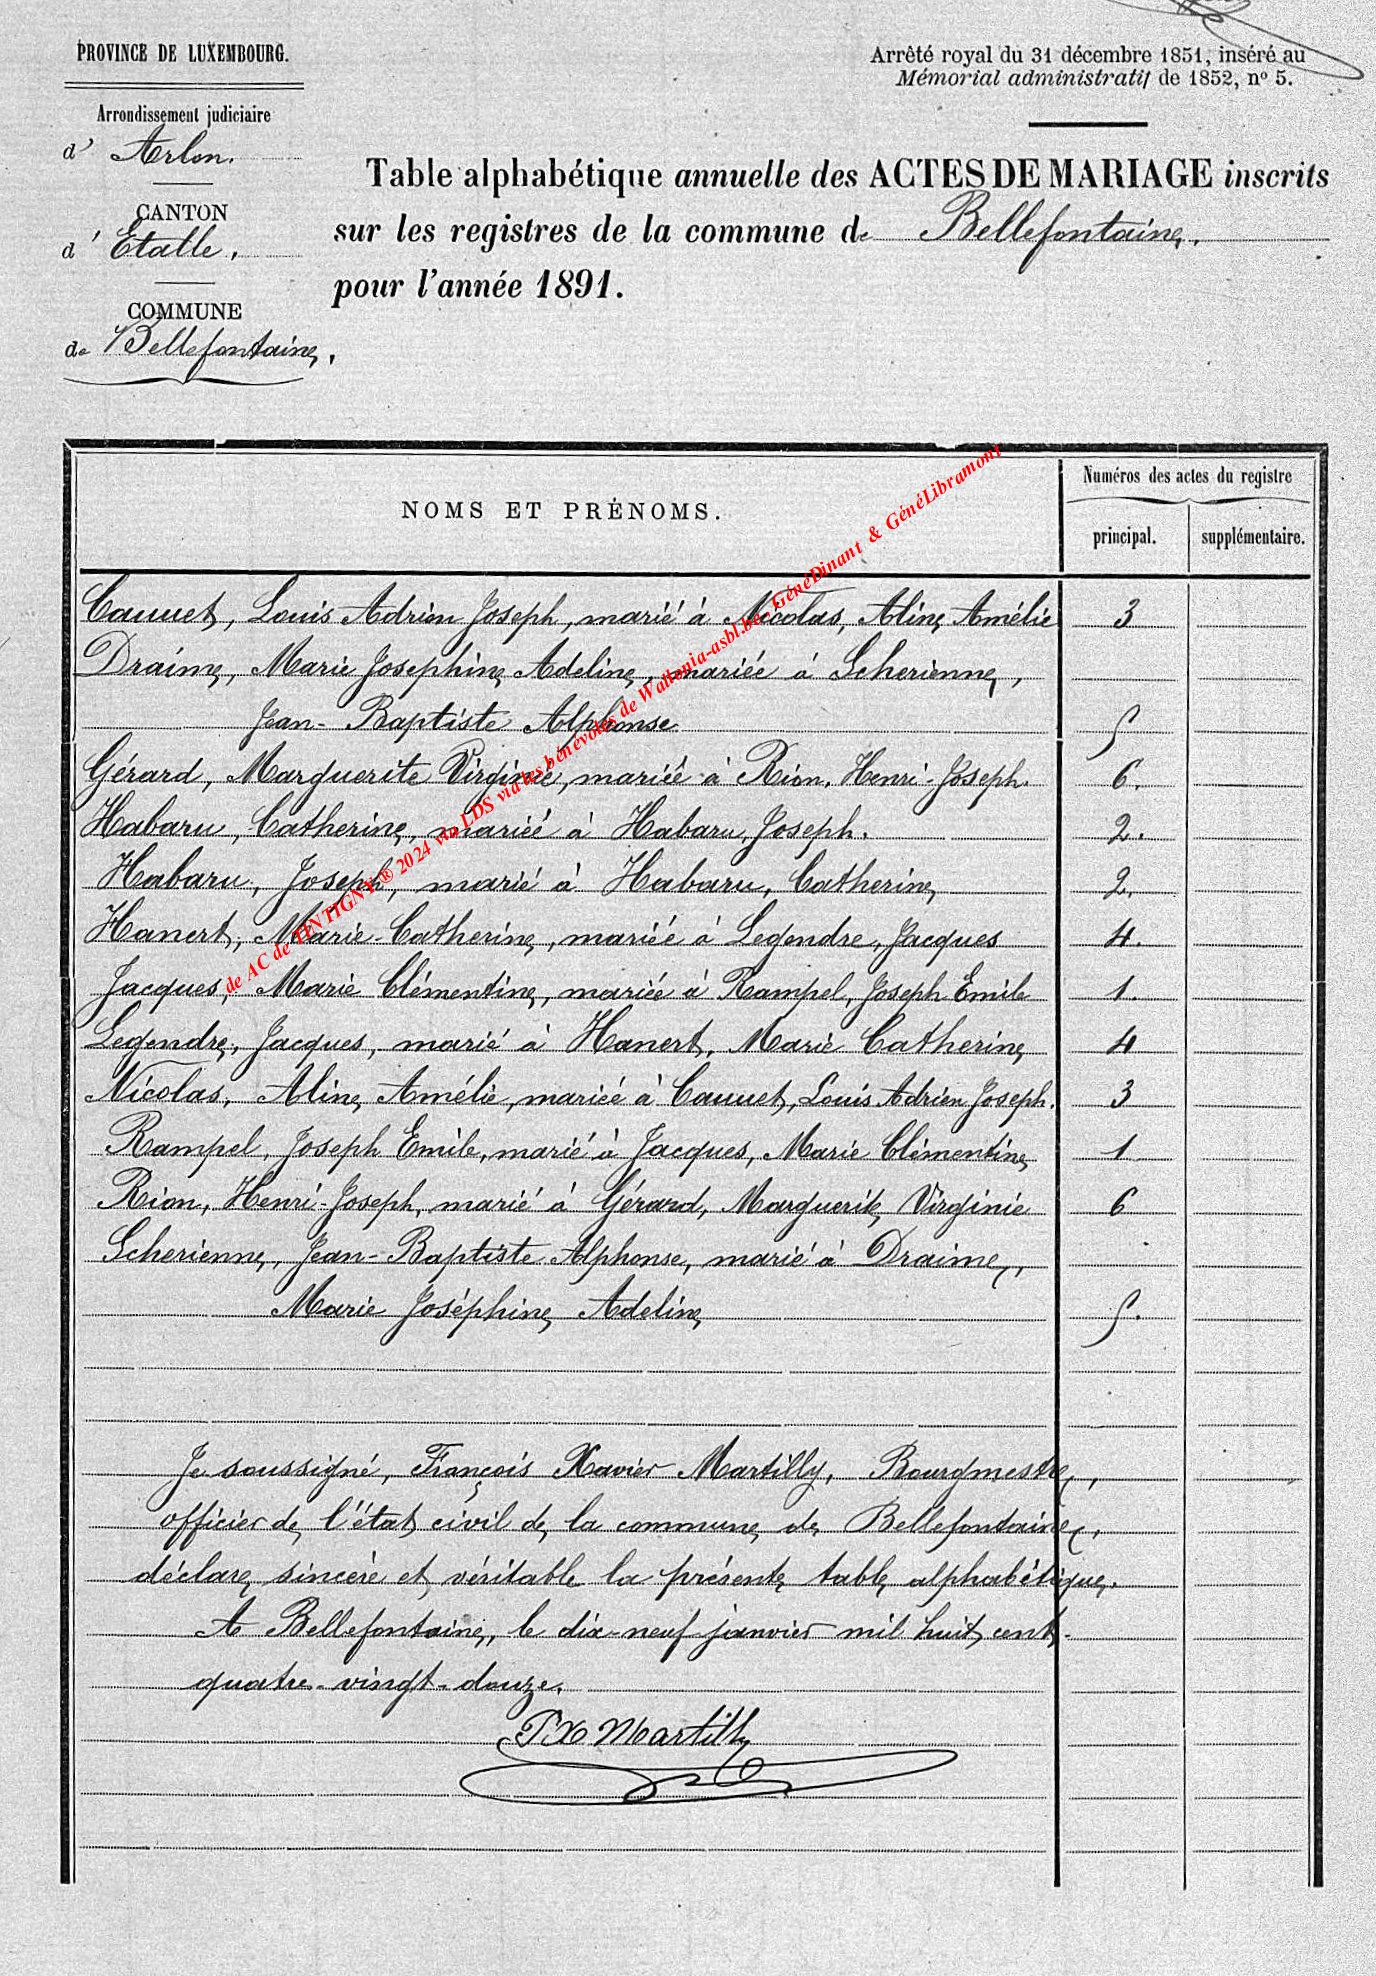 PROVINCE DE LUXEMBOURG.
Arrondissement judiciaire
d' Arlon.
CANTON
d' Etalle.
COMMUNE
de Bellefontaine.
Arrêté royal du 31 décembre 1851, inséré au
Mémorial administratif de 1852, nº 5.
Table alphabétique annuelle des ACTES DE MARIAGE inscrits
sur les registres de la commune de Bellefontaine.
pour l'année 1891.
NOMS ET PRÉNOMS.
Numéros des actes du registre
principal. supplémentaire.
Cauuet, Louis Adrien Joseph, marié à Nicolas, Aline Amélie 3
Draime, Marie Josephine Adeline, mariée à Scherienne,
Jean-Baptiste Alphonse 5
Gérard, Marguerite Virginie, mariée à Rion, Henri-Joseph. 6.
Habaru, Catherine, mariée à Habaru, Joseph. 2.
Habaru, Joseph, marié à Habaru, Catherine 2.
Hanert, Marie-Catherine, mariée à Legendre, Jacques 4.
Jacques, Marie Clémentine, mariée à Rampel, Joseph Emile 1.
Legendre, Jacques, marié à Hanert, Marie Catherine 4
Nicolas, Aline Amélie, mariée à Cauuet, Louis Adrien Joseph. 3
Rampel, Joseph Emile, marié à Jacques, Marie Clémentine 1
Rion, Henri-Joseph, marié à Gérard, Marguerite Virginie 6
Scherienne, Jean-Baptiste Alphonse, marié à Draime,
Marie Joséphine Adeline 5.
Je soussigné, François Xavier Martilly, Bourgmestre,
officier de l'état civil de la commune de Bellefontaine,
déclare sincère et véritable la présente table alphabétique.
A Bellefontaine, le dix-neuf janvier mil huit cent-
quatre-vingt-douze.
FX Martilly
de AC de TINTIGNY ® 2024 via LDS via les bénévoles de Wallonia-asbl.be, GénéDinant & GénéLibramont